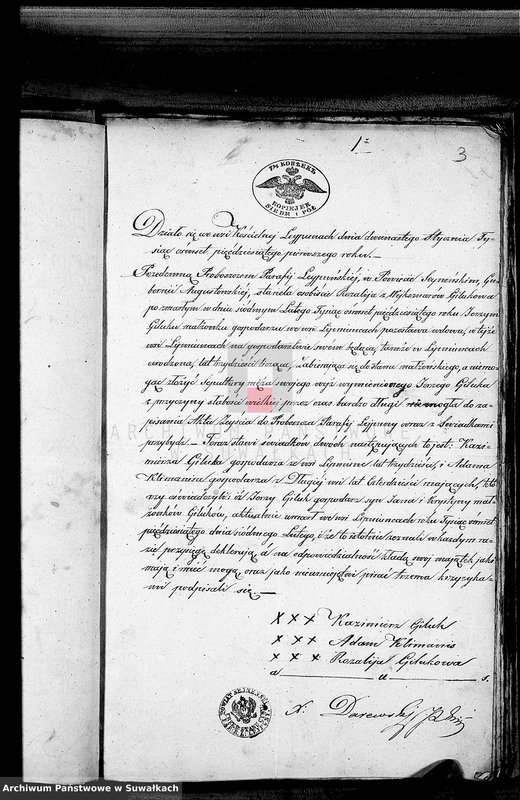 1=
3
7½ KOPIEJEK
KOPIEJEK
SIEDM I PÓŁ
Działo się we wsi Kościelnej Leypunach dnia dwunastego Stycznia Ty-
siąc ośmset pięćdziesiątego pierwszego roku. —
Przedemną Proboszczem Parafij Leypuńskiéj, w Powiecie Seyneńskim, Gu-
bernii Augustowskiéj, stanęła osobiście Rozalija z Gilukowa
pozmarłym w dniu siódmym Lutego Tysiąc ośmset pięćdziesiątego roku Jerzym
Giluku małżonku gospodarzu we wsi Lipniuncach pozostawa wdową, w tejże
wsi Lipniuncach na gospodarstwie swóim będąca, tamże w Lipniuncach
urodzona, lat trzydzieście trzy, zabierająca się do stanu małżeńskiego, a niemo-
gąc złożyć Sepultury męża swojego wyż wymienionego Jerzego Giluka
z przyczyny słabości wielkiéj przez czas bardzo długi niemogła do za-
pisania Aktu Zeyścia do Proboszcza Parafij Leypuny wraz z Świadkami
przybydź. — Teraz stawi świadków dwóch następujących to jest: Kazi-
mierza Giluka gospodarza ze wsi Lipniunc lat trzydzieści, i Adama
Klimanisa gospodarza z Długiéj wsi lat czterdzieście mających, któ-
rzy oświadczyli: iż Jerzy Giluk gospodarz syn Jana i Krystyny mał-
żonków Giluków, aktualnie umarł we wsi Lipniuncach roku Tysiąc ośmset
pięćdziesiątego dnia siódmego Lutego, i że to istotnie zeznali w każdym ra-
zie przysięgę deklarują, a na odpowiedzialność kładą swój majątek jaki
mają i mieć mogą, oraz jako nieumiejętni pisać trzema krzyżyka-
mi podpisali się. —
X X X Kazimierz Giluk
X X X Adam Klimanis
X X X Rozalija Gilukowa
X. Darewski
Archiwum Państwowe w Suwałkach